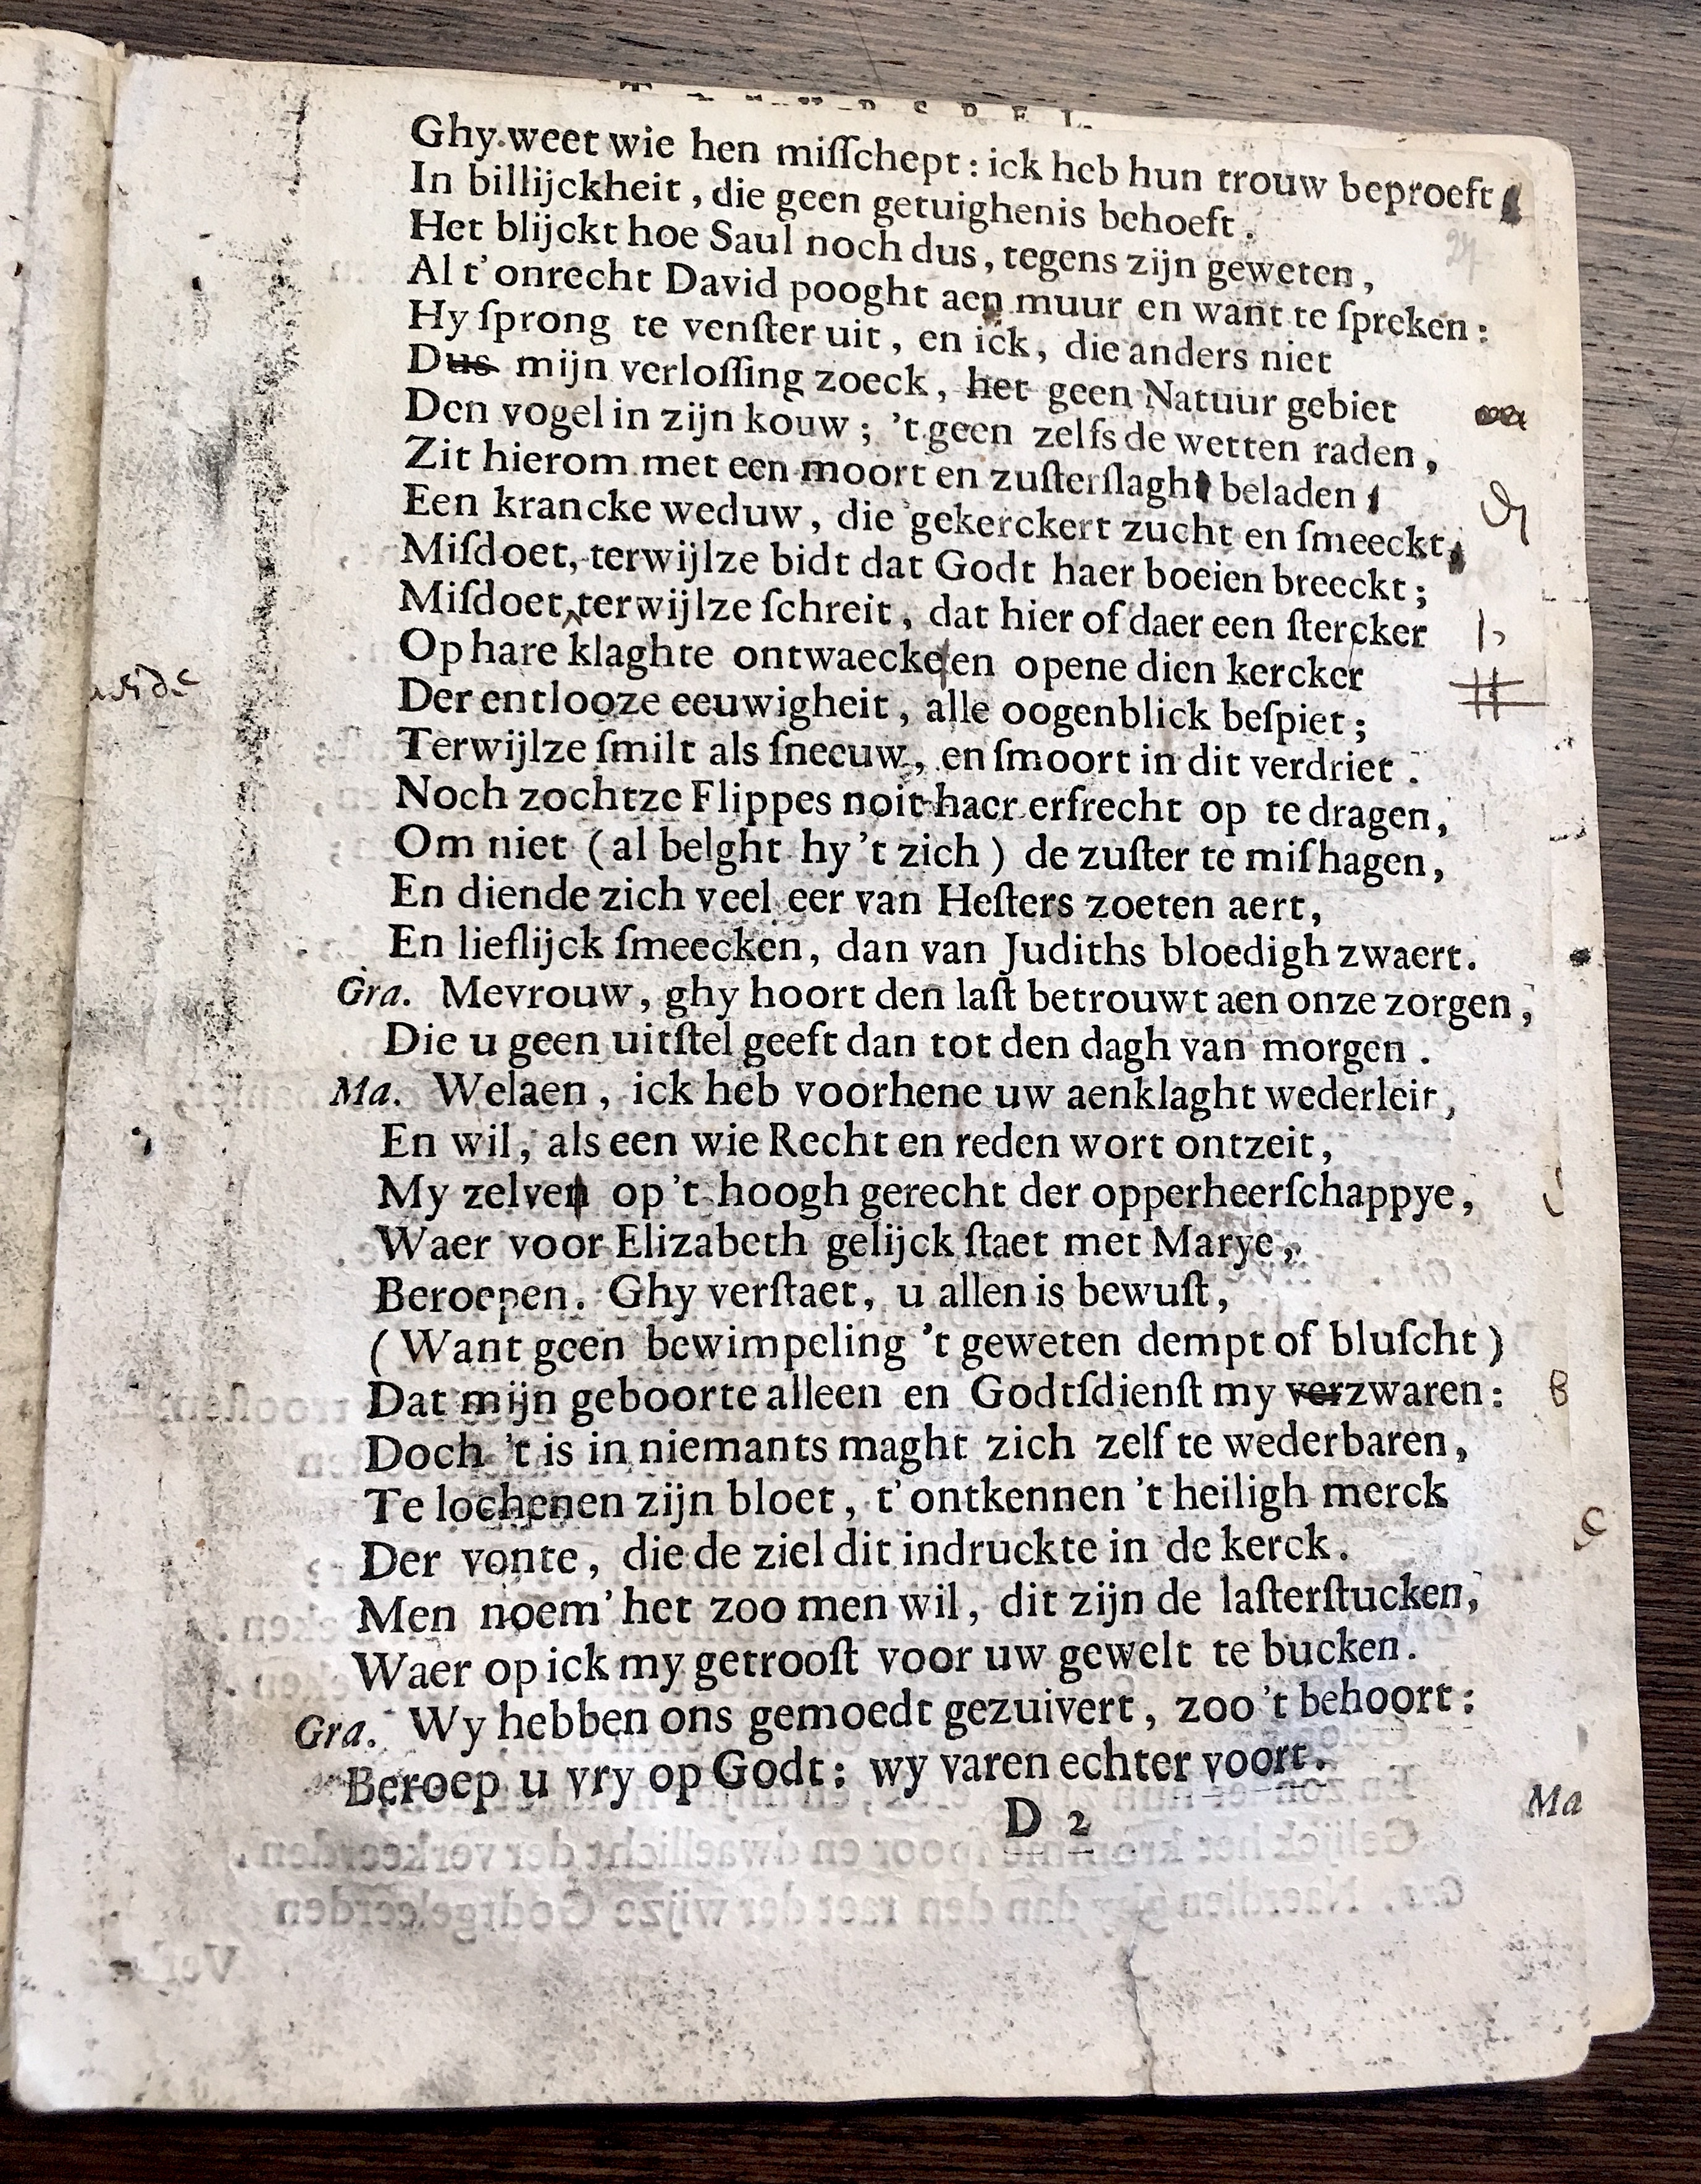 Ghy weet wie hen miſſchept: ick heb hun trouw beproeft
In billijckheit, die geen getuighenis behoeft.
Het blijckt hoe Saul noch dus, tegens zijn geweten,
Al t'onrecht David pooght aen muur en want te ſpreken:
Hy ſprong te venſter uit, en ick, die anders niet
Dus mijn verloſſing zoeck, het geen Natuur gebiet
Den vogel in zijn kouw; 't geen zelfs de wetten raden,
Zit hierom met een moort en zuſterſlaght beladen
Een krancke weduw, die gekerckert zucht en ſmeeckt,
Miſdoet, terwijlze bidt dat Godt haer boeien breeckt;
Miſdoet, terwijlze ſchreit, dat hier of daer een ſtercker
Op hare klaghte ontwaecke, en opene dien kercker
Der entlooze eeuwigheit, alle oogenblick beſpiet;
Terwijlze ſmilt als ſneeuw, en ſmoort in dit verdriet.
Noch zochtze Flippes noit haer erfrecht op te dragen,
Om niet (al belght hy 't zich) de zuſter te miſhagen,
En diende zich veel eer van Heſters zoeten aert,
En lieflijck ſmeecken, dan van Judiths bloedigh zwaert.
Gra. Mevrouw, ghy hoort den laſt betrouwt aen onze zorgen,
Die u geen uitſtel geeft dan tot den dagh van morgen.
Ma. Welaen, ick heb voorhene uw aenklaght wederleit,
En wil, als een wie Recht en reden wort ontzeit,
My zelven op 't hoogh gerecht der opperheerſchappye,
Waer voor Elizabeth gelijck ſtaet met Marye,
Beroepen. Ghy verſtaet, u allen is bewuſt,
(Want geen bewimpeling 't geweten dempt of bluſcht)
Dat mijn geboorte alleen en Godtſdienſt my verzwaren:
Doch 't is in niemants maght zich zelf te wederbaren,
Te lochenen zijn bloet, t'ontkennen 't heiligh merck
Der vonte, die de ziel dit indruckte in de kerck.
Men noem' het zoo men wil, dit zijn de laſterſtucken,
Waer op ick my getrooſt voor uw gewelt te bucken.
Gra. Wy hebben ons gemoedt gezuivert, zoo 't behoort:
Beroep u vry op Godt: wy varen echter voort.
D 2
Ma